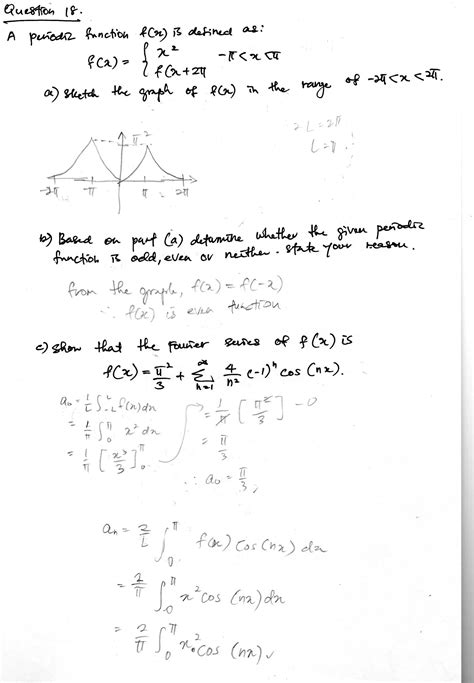 Question 18.
A periodic function f(x) is defined as:
f(x) = { x² -π<x<π
f(x+2π
a) sketch the graph of f(x) in the range of -2π<x<2π.
2L=2π
L=π
π²
-2π -π π 2π
b) Based on part (a) determine whether the given periodic
function is odd, even or neither. State your reason.
from the graph, f(x) = f(-x)
∴ f(x) is even function
c) Show that the Fourier series of f(x) is
f(x) = π²/3 + ∞Σn=1 4/n² (-1)ⁿ cos (nx).
a₀ = 1/L ∫-L^L f(x)dx
= 1/π ∫₀^π x² dx
= 1/π [x³/3]₀^π
= 1/π [π³/3] - 0
= π/3
∴ a₀ = π/3,
aₙ = 2/L ∫₀^π f(x) cos(nx) dx
= 2/π ∫₀^π x² cos (nx) dx
= 2/π ∫₀^π x² cos (nx)